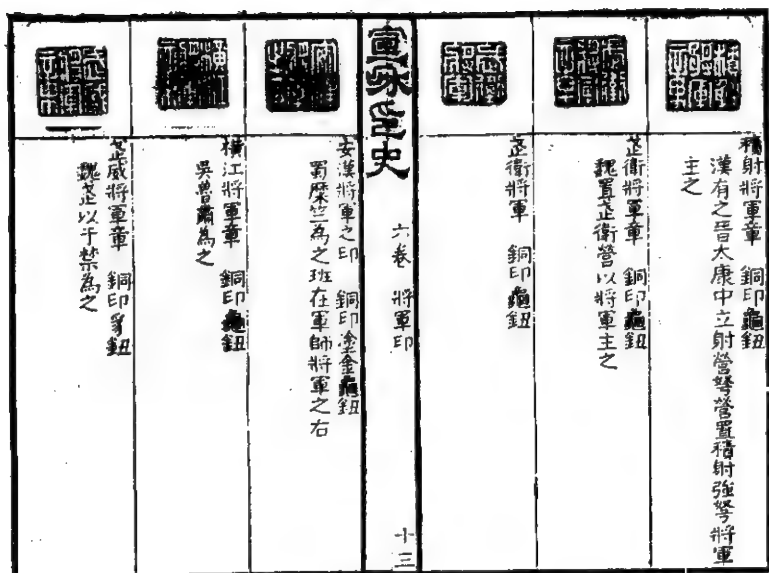 積射將軍章　銅印龜鈕
漢有之晉太康中立射營弩營置積射強弩將軍
主之
武衛將軍章　銅印龜鈕
魏置武衛營以將軍主之
武衛將軍　銅印龜鈕
宣和印史　六卷　將軍印　十三
安漢將軍之印　銅印塗金龜鈕
蜀糜竺為之班在軍師將軍之右
橫江將軍章　銅印龜鈕
吳魯肅為之
武威將軍章　銅印鈕
魏武以于禁為之